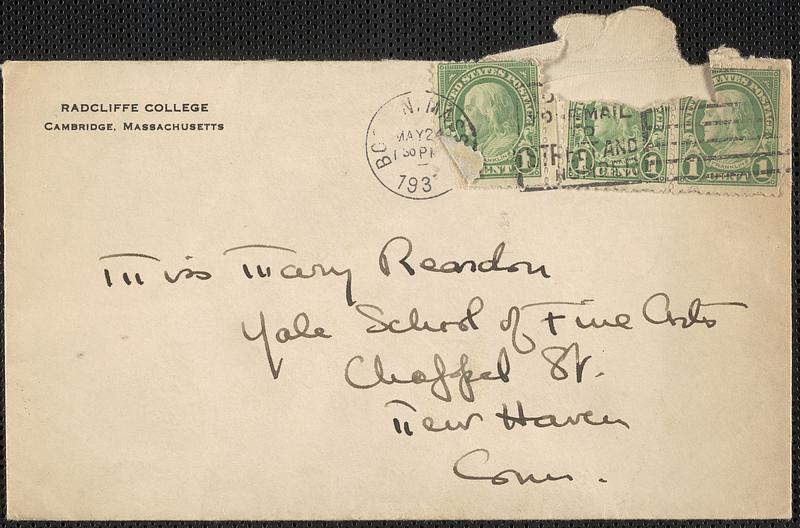 RADCLIFFE COLLEGE
CAMBRIDGE, MASSACHUSETTS
MAY 24
1 30 PM
193
UNITED STATES POSTAGE
1 CENT
MAIL
AND
1 CENT 1
FRANKLIN
1 1
Miss Mary Reardon
Yale School of Fine Arts
Chappel St.
New Haven
Conn.